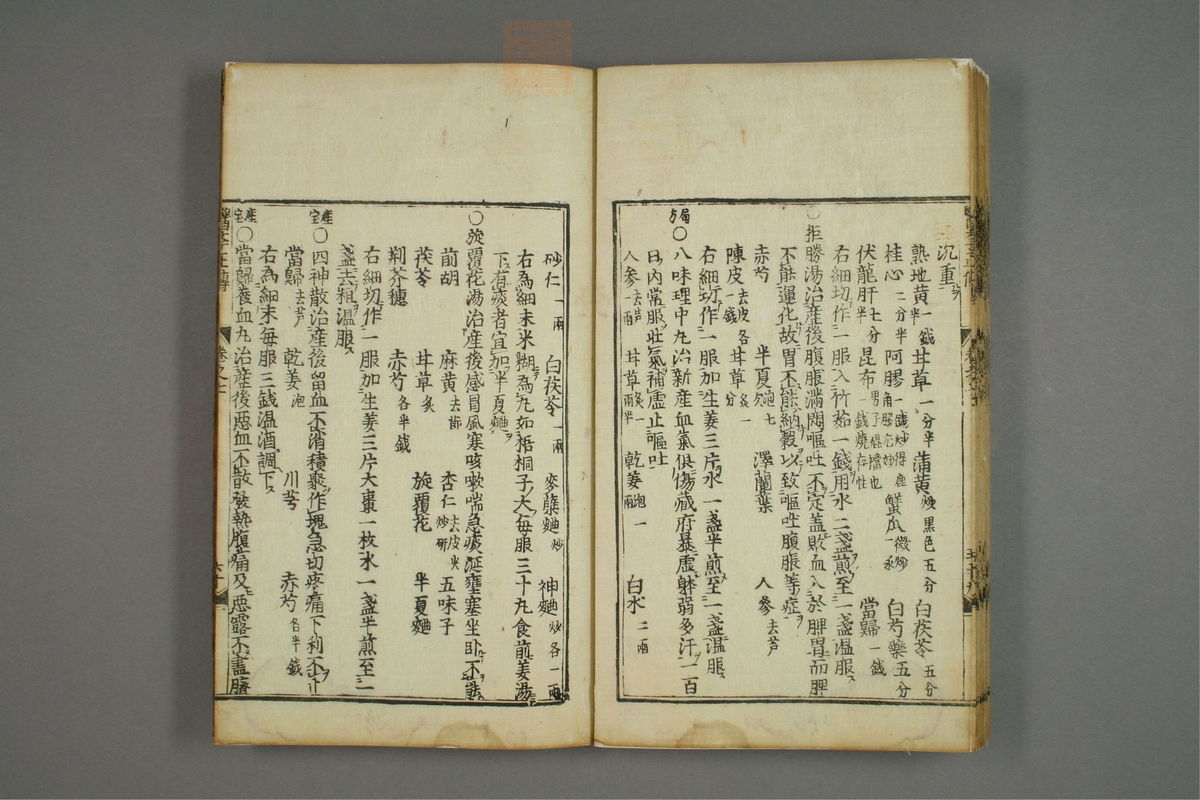 沉重
熟地黄一錢半 甘草一分半 蒲黄炒黒色五分 白茯苓五分
桂心二分半 阿膠一錢炒得 蟹瓜一永微炒 白芍藥五分
伏龍肝半七分 昆布一錢燒存性 當歸一錢
右細切作一服入竹茹一錢用水二盞煎至一盞温服
○拒勝湯治産後腹脹滿悶嘔吐不定盖敗血入於脾胃而脾
不能運化故胃不能納穀以致嘔吐腹脹等症
赤芍 半夏泡七 澤蘭葉 人參去芦
陳皮去皮各一錢 甘草炙一分
右細切作一服加生姜三片水一盞半煎至一盞温服
局方○八味理中丸治新産血氣俱傷藏府暴虚躰弱多汗一百
日内常服壮氣補虚止嘔吐
人参去芦一兩 甘草炙一兩半 乾姜炮一兩 白水二兩
砂仁一兩 白茯苓一兩 麥蘗麯炒 神麯炒各一兩
右為細末米糊為丸如梧桐子大毎服三十丸食前姜湯
下有痰者宜加半夏麯
○旋覆花湯治産後感冒風寒咳嗽喘急痰涎壅塞坐卧不能
前胡 麻黄去節 杏仁去皮尖炒研 五味子
茯苓 甘草炙 旋覆花 半夏麯
荆芥穗 赤芍各半錢
右細切作一服加生姜三片大棗一枚水一盞半煎至一
盞去粗温服
産宝○四神散治産後留血不消積聚作塊急切疼痛下利不止
當歸去芦 乾姜炮 川芎 赤芍各半錢
右為細末毎服三錢温酒調下
産宝○當歸養血丸治産後惡血不散發熱腹痛及惡露不盡臍